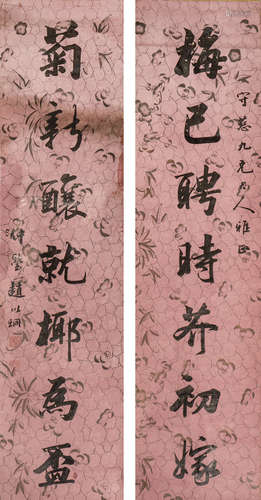 梅已聘時茶初嫁
守慈九兄大人雅正
菊新釀就椰為盃
仲瑩趙以炯